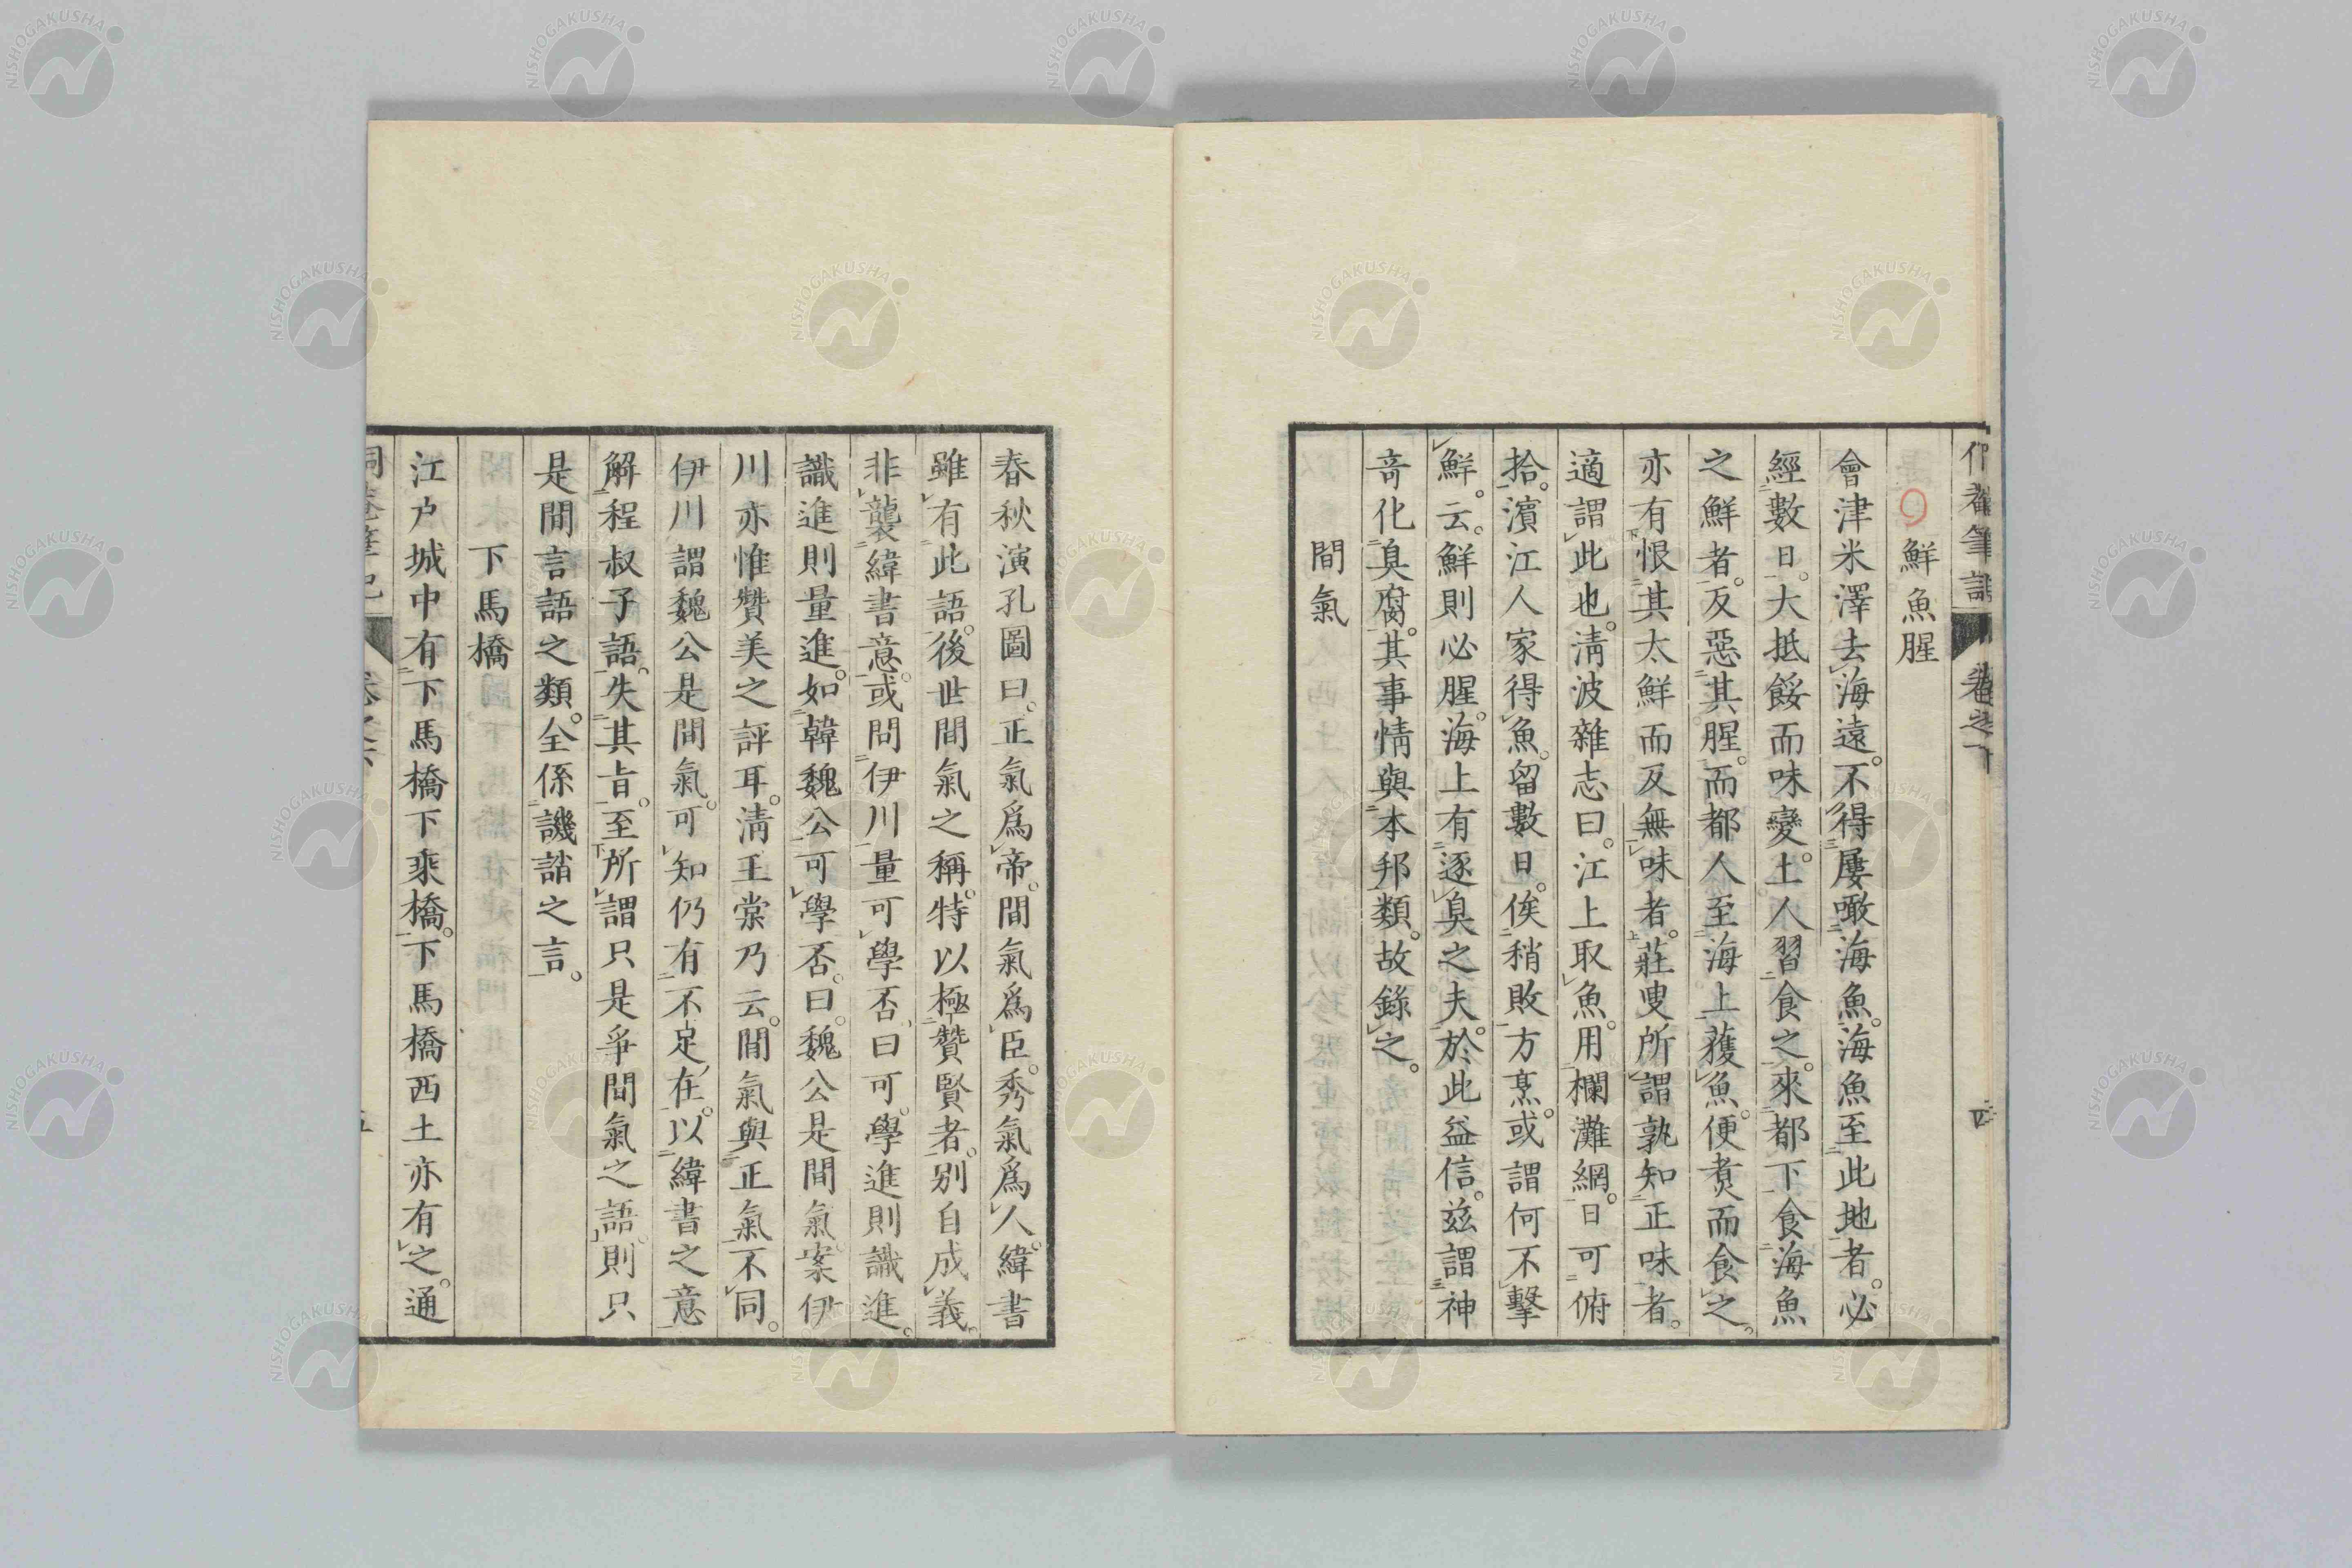 鮮魚腥
會津米澤去海遠。不得屢噉海魚。海魚至此地者。必
經數日。大抵餒而味變。土人習食之。來都下食海魚
之鮮者。反惡其腥。而都人至海上獲魚。便煑而食之。
亦有恨其太鮮而反無味者。莊叟所謂孰知正味者。
適謂此也。清波雜志曰。江上取魚。用欄灘網。日可俯
拾。濱江人家得魚。留數日。俟稍敗方烹。或謂何不擊
鮮。云。鮮則必腥。海上有逐臭之夫。於此益信。茲謂神
奇化臭腐。其事情與本邦類。故錄之。
間氣
春秋演孔圖曰。正氣爲帝。間氣爲臣。秀氣爲人。緯書
雖有此語。後世間氣之稱。特以極贊賢者。別自成義。
非襲緯書意。或問伊川量可學否。曰可。學進則識進。
識進則量進。如韓魏公可學否。曰魏公是間氣。案伊
川亦惟贊美之評耳。清王棠乃云。間氣與正氣不同。
伊川謂魏公是間氣。可知仍有不足在。以緯書之意
解程叔子語。失其旨。至所謂只是爭間氣之語。則只
是間言語之類。全係譏誚之言。
下馬橋
江戶城中有下馬橋下乘橋。下馬橋西土亦有之。通